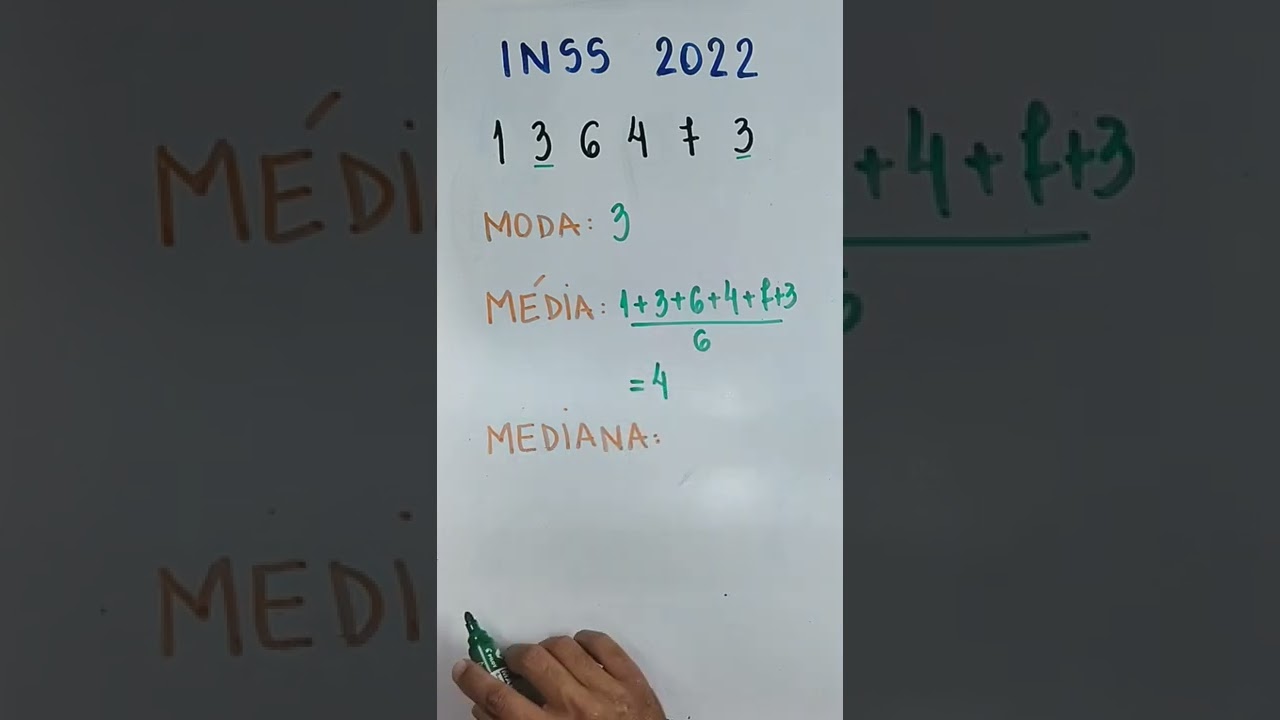 INSS 2022
1 3 6 4 7 3
MODA: 3
MÉDIA: 1+3+6+4+7+3
6
= 4
MEDIANA: